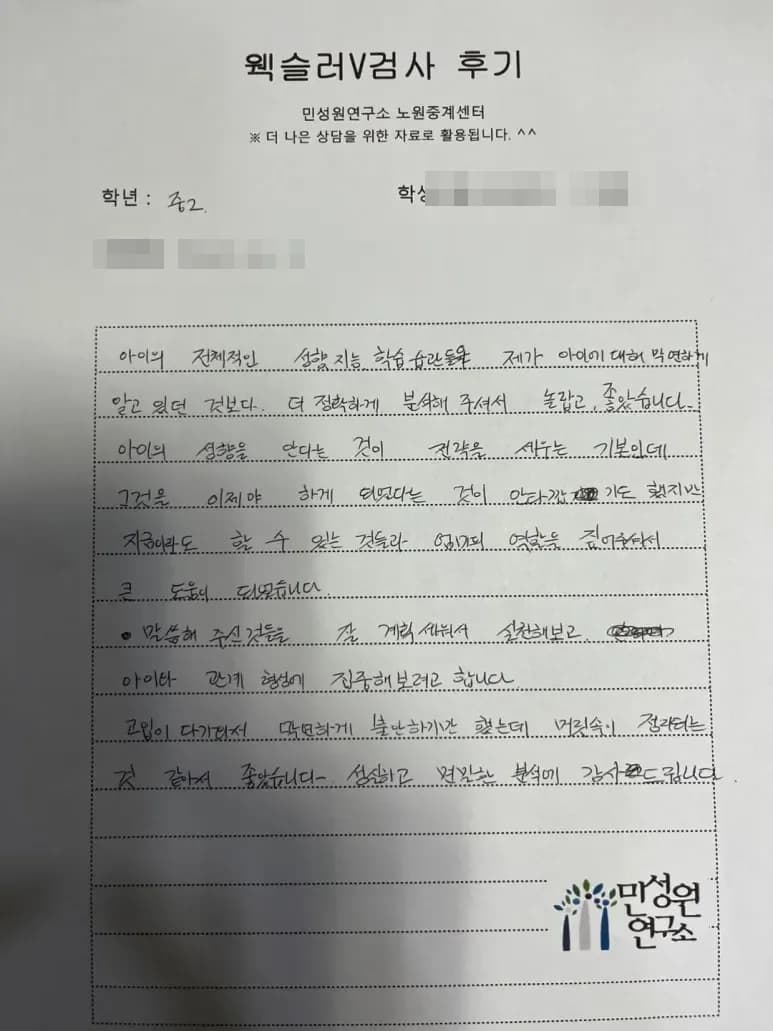 웩슬러V검사 후기
민성원연구소 노원중계센터
※ 더 나은 상담을 위한 자료로 활용됩니다. ^^
학년 : 중2.
아이의 전체적인 성향, 지능, 학습 습관들 제가 아이에 대해 막연하게
알고 있던 것보다. 더 정확하게 분석해 주셔서 놀랍고, 좋았습니다.
아이의 성향을 안다는 것이 전략을 세우는 기본인데
그것을 이제야 하게 되었다는 것이 안타깝기도 했지만
지금이라도 할 수 있는 것들과 엄마의 역할을 짚어주셔서
큰 도움이 되었습니다.
• 말씀해 주신것들을 잘 계획 세워서 실천해보고
아이와 관계 형성에 집중해보려고 합니다.
고입이 다가와서 막연하게 불안하기만 했는데 머릿속이 정리되는
것 같아서 좋았습니다~ 성실하고 면밀한 분석에 감사드립니다.
민성원
연구소